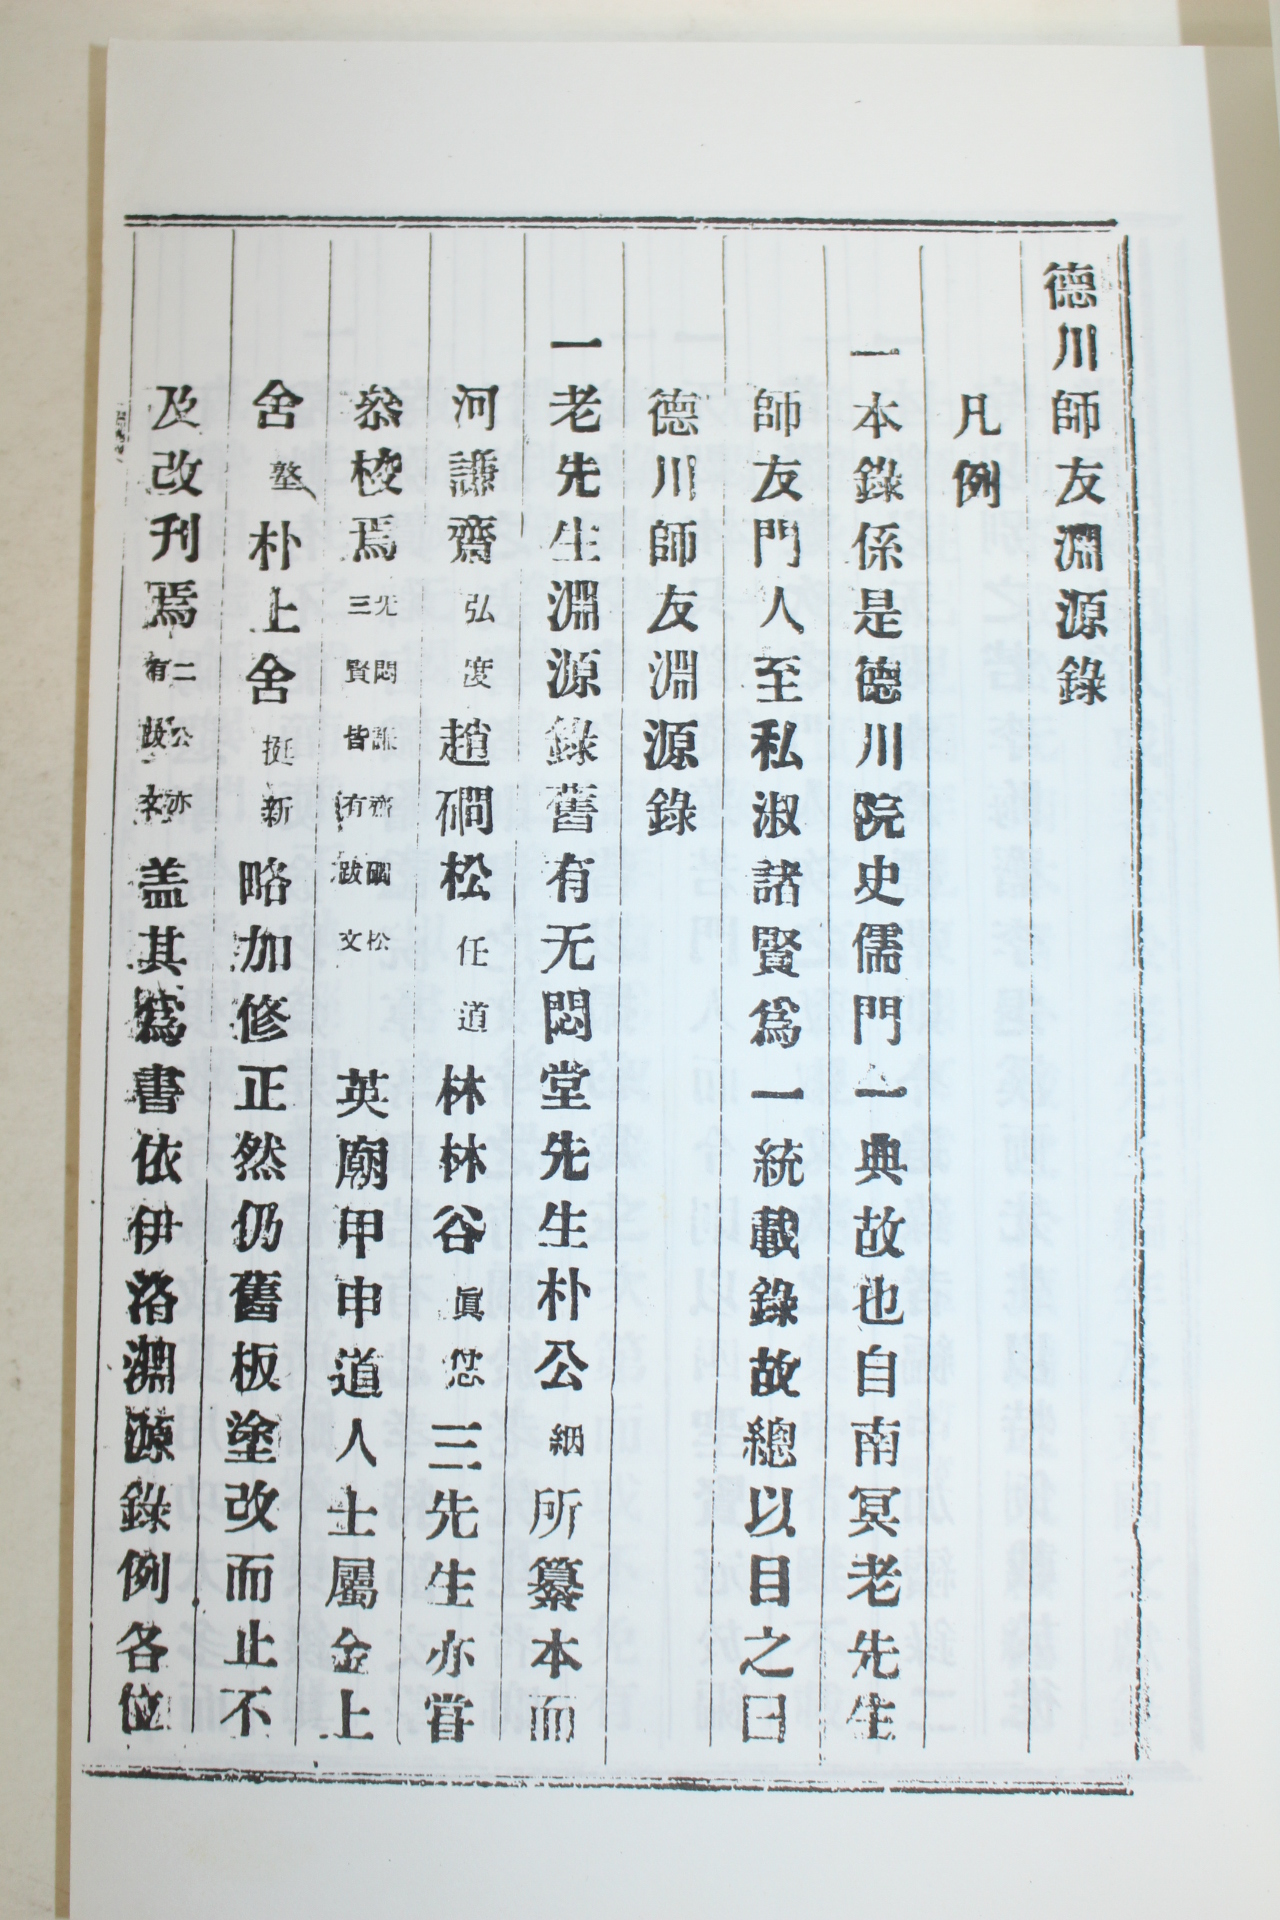 德川師友淵源錄
凡例
一本錄係是德川院史儒門一典故也自南冥老先生
師友門人至私淑諸賢爲一統載錄故總以目之曰
德川師友淵源錄
一老先生淵源錄舊有无悶堂先生朴公絪所纂本而
河謙齋弘度趙磵松任道林林谷眞怤三先生亦嘗
叅校焉无悶謙齋磵松三賢皆有跋文英廟甲申道人士屬金上
舍墪朴上舍挺新略加修正然仍舊板塗改而止不
及改刊焉二公亦有跋文盖其爲書依伊洛淵源錄例各位